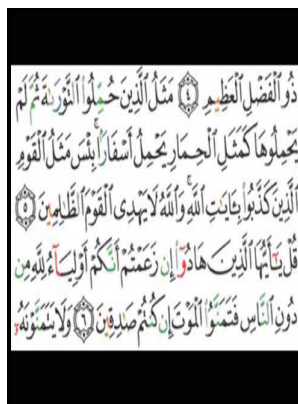 ذُو الْفَضْلِ الْعَظِيمِ ٤ مَثَلُ الَّذِينَ حُمِّلُوا التَّوْرَىٰةَ ثُمَّ لَمْ
يَحْمِلُوهَا كَمَثَلِ الْحِمَارِ يَحْمِلُ أَسْفَارًا ۚ بِئْسَ مَثَلُ الْقَوْمِ
الَّذِينَ كَذَّبُوا بِـَٔايَـٰتِ اللَّهِ ۚ وَاللَّهُ لَا يَهْدِى الْقَوْمَ الظَّـٰلِمِينَ ٥
قُلْ يَـٰٓأَيُّهَا الَّذِينَ هَادُوٓا إِن زَعَمْتُمْ أَنَّكُمْ أَوْلِيَآءُ لِلَّهِ مِن
دُونِ النَّاسِ فَتَمَنَّوُا الْمَوْتَ إِن كُنتُمْ صَـٰدِقِينَ ٦ وَلَا يَتَمَنَّوْنَهُۥٓ